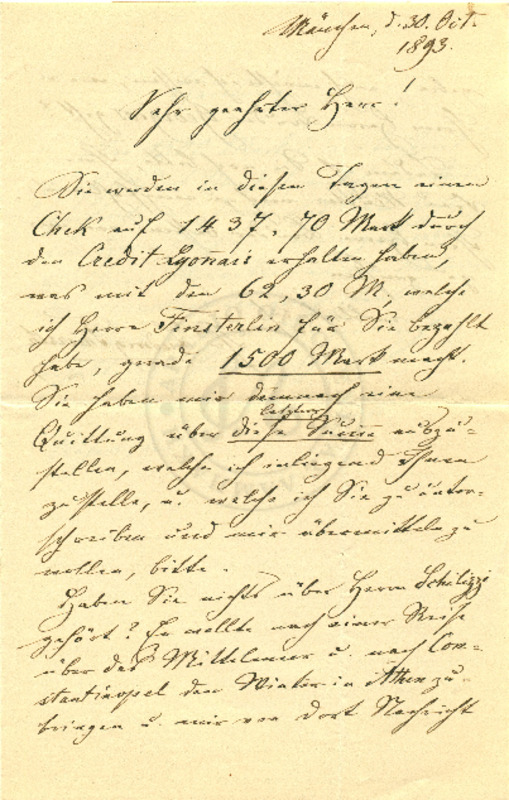 München, d. 30. Oct.
1893.
Sehr geehrter Herr!
Sie werden in diesen Tagen einen
Chek auf 1437,70 Mark durch
den Credit Lyonnais erhalten haben,
was mit den 62,30 M, welche
ich Herrn Finsterlin für Sie bezahlt
habe, gerade 1500 Mark macht.
Sie haben mir demnach eine
Quittung über diese letztere Summe auszu-
stellen, welche ich inliegend Ihnen
zustelle, u. welche ich Sie zu unter-
schreiben und mir übermitteln zu
wollen, bitte.
Haben Sie nichts über Herrn Schilizzi
gehört? Er wollte nach einer Reise
über das Mittelmeer u. nach Con-
stantinopel den Winter in Athen zu-
bringen u. mir von dort Nachricht